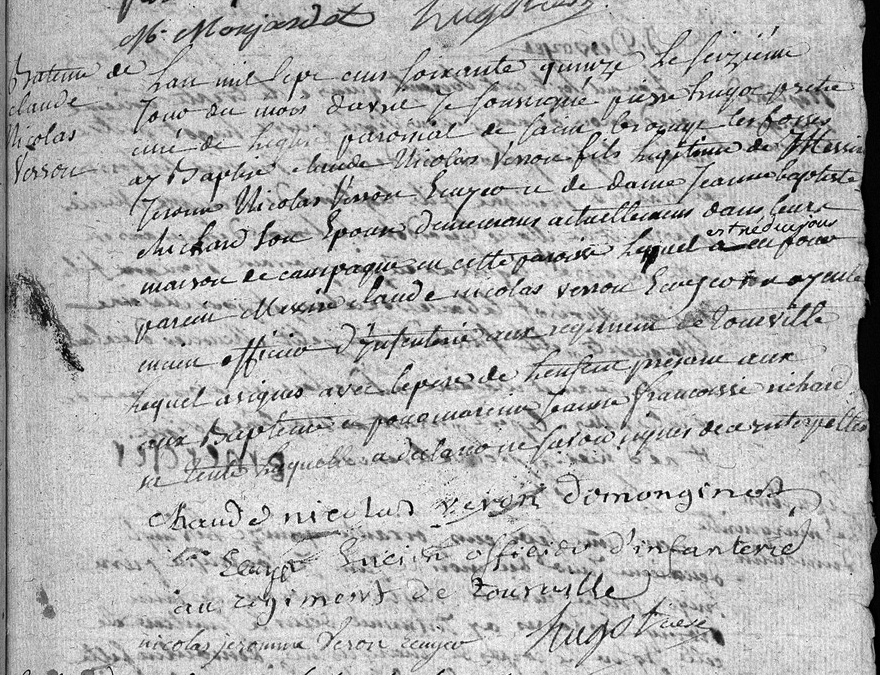 M. Monjardet hugo ptre
Bateme de
claude
Nicolas
Verron
Lan mil sept cens soixante quinze le seizième
Jour du mois davril Je soussigné pierre hugo pretre
curé de leglise paroissial de saint broingt les fosses
ay Baptisé claude Nicolas Verron fils legitime de Messire
Jerome Nicolas Verron Ecuyer et de dame Jeanne baptiste
Richard son Epouse demeurans actuellement dans leurs
maison de campagne en cette paroisse lequel a eu pour
est né du jour
parein Messire claude nicolas verron Ecuyer ayeule
encien officier d'Infanterie aux regiment de Tourville
lequel a signés avec le pere de lenfent présent aux
aux Baptême et pour mareine Jeanne francoisse richard
sa tente laquelle a declaré ne savoir signer de ce interpellée
Claude nicolas veron demonginot
Ecuyer Encien officier d'infanterie
au regiment de Tourville
nicolas jeromme Veron ecuyer hugo ptre